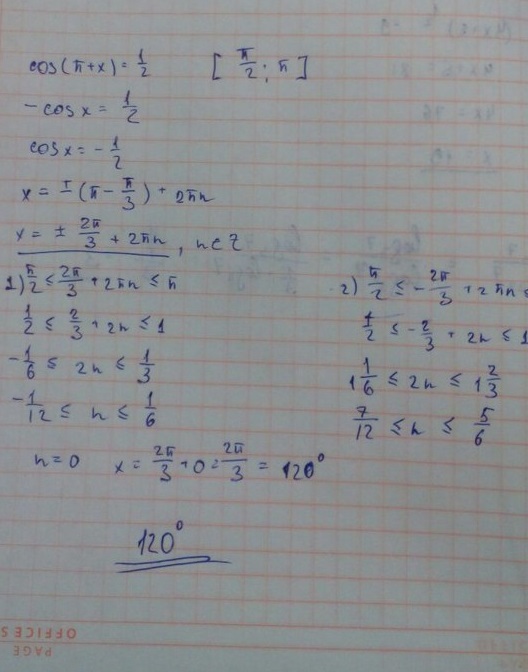 cos(π+x)=1/2 [π/2; π]
-cosx = 1/2
cosx = -1/2
x = ±(π-π/3) + 2πn
x = ± 2π/3 + 2πn, n∈Z
1) π/2 ≤ 2π/3 + 2πn ≤ π
1/2 ≤ 2/3 + 2n ≤ 1
-1/6 ≤ 2n ≤ 1/3
-1/12 ≤ n ≤ 1/6
n=0 x = 2π/3 + 0 = 2π/3 = 120°
120°
2) π/2 ≤ -2π/3 + 2πn ≤
1/2 ≤ -2/3 + 2n ≤ 1
1 1/6 ≤ 2n ≤ 1 2/3
7/12 ≤ n ≤ 5/6
OFFICE S
PAGE